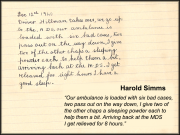 Dec 12th 1916
Driver Hillman takes over, we go up
to the M.D.S. our ambulance is
loaded with six bad cases,
two pass out on the way down, I give
two of the other chaps a sleeping
powder each to help them a bit.
Arriving back at the M.D.S. I get
relieved for eight hours I have a
good sleep.
Harold Simms
"Our ambulance is loaded with six bad cases,
two pass out on the way down, I give two of
the other chaps a sleeping powder each to
help them a bit. Arriving back at the MDS
I get relieved for 8 hours."